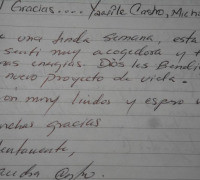 Gracias.... Yamile Castro, Mich
una linda semana, esta
senti muy acogedora y t
Dios les Bendi
nuevo proyecto de vida.
on muy lindos y espero
nchas gracias
tentamente,
Castro.